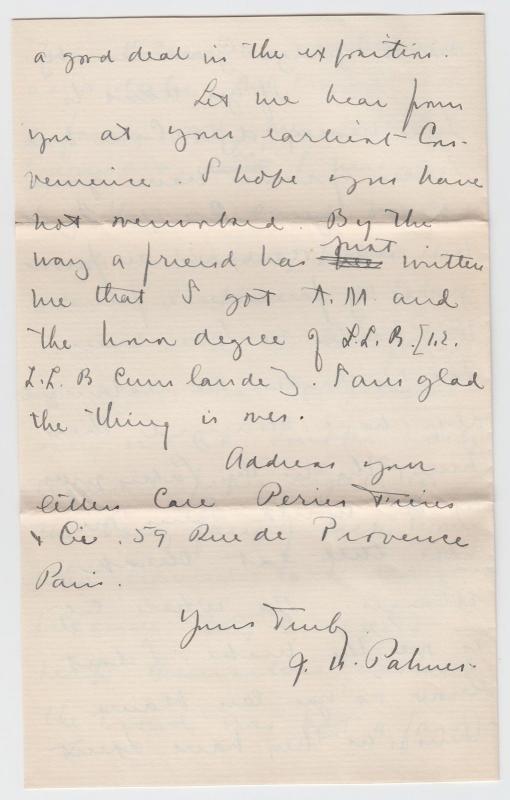 a good deal in the exposition.
Let me hear from
you at your earliest Con-
venience. I hope you have
not overworked. By the
way a friend has just written
me that I got A.M. and
the honor degree of L.L.B. [i.e.
L.L.B Cum laude]. I am glad
the thing is over.
Address your
letters Care Perier Freres
& Cie. 59 Rue de Provence
Paris.
Yours Truly
J. H. Palmer.